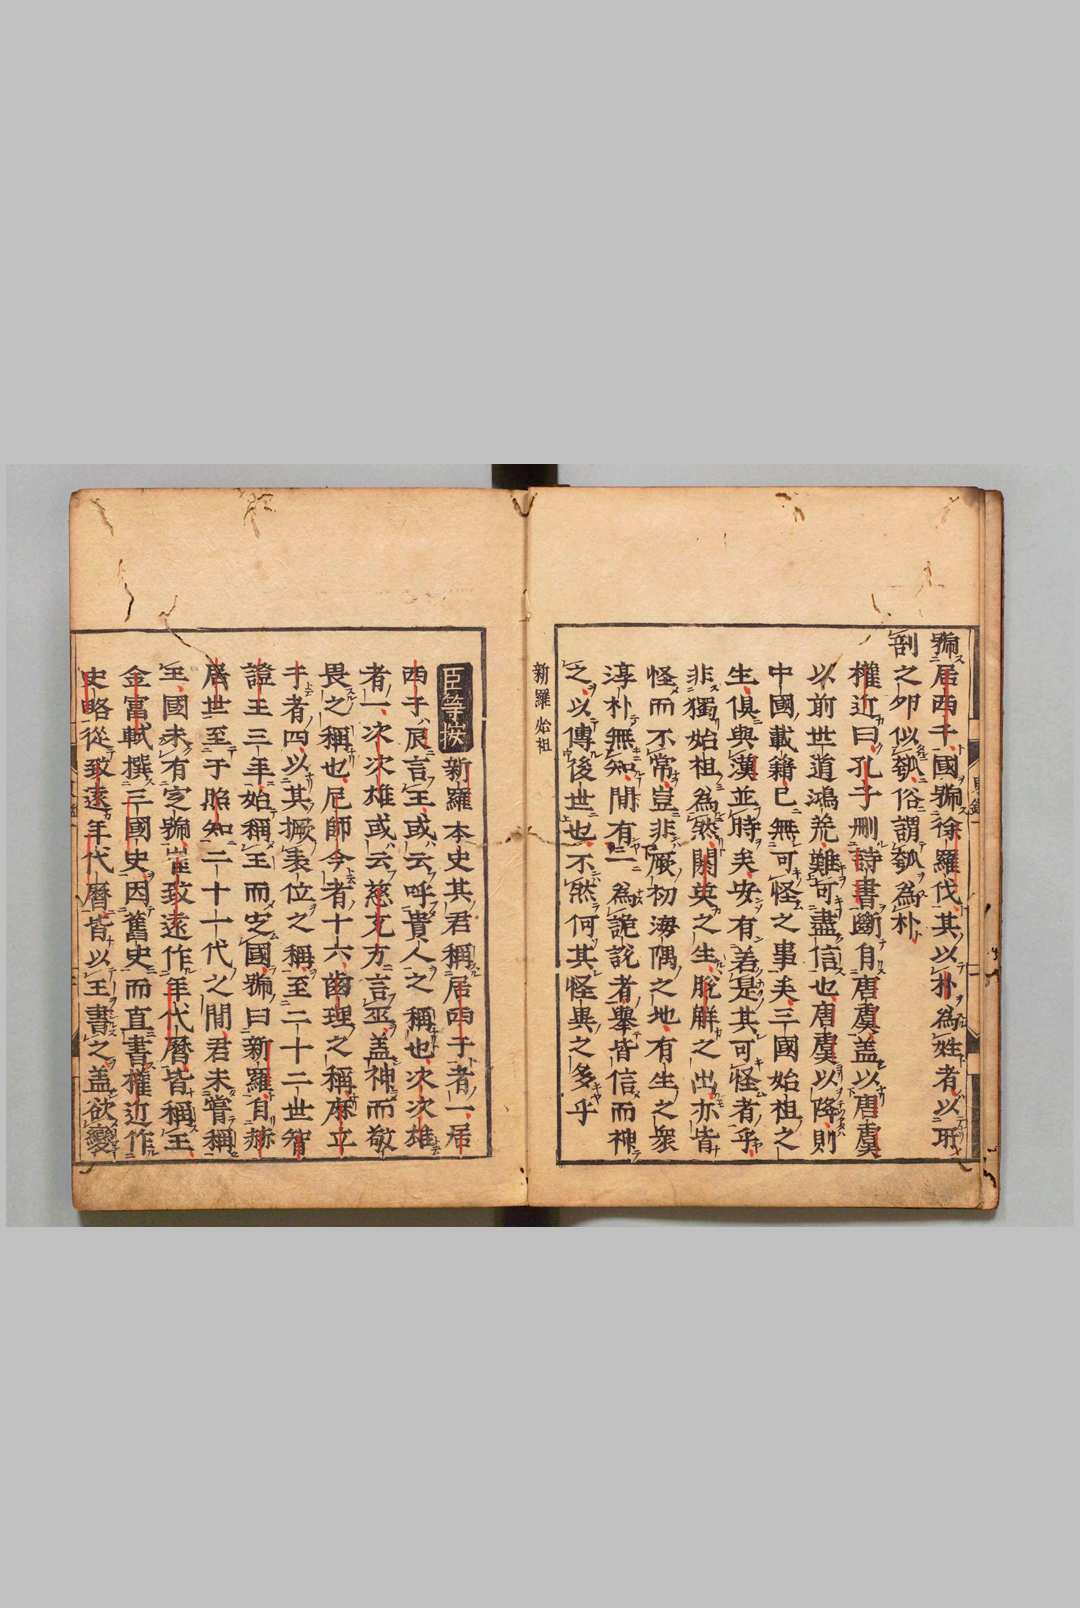 號居西干國號徐羅伐其以朴爲姓者以所
剖之卵似瓠俗謂瓠爲朴
權近曰孔子刪詩書斷自唐虞蓋以唐虞
以前世道鴻荒難可盡信也唐虞以降則
中國載籍已無可怪之事矣三國始祖之
生俱與漢並時矣安有若是其可怪者乎
非獨始祖爲然閼英之生脫解之出亦皆
怪而不常豈非厥初海隅之地有生之衆
淳朴無知間有一爲詭說者擧皆信而神
之以傳後世也不然何其怪異之多乎
新羅始祖
臣等按新羅本史其君稱居西干者一居
西干辰言王或云呼貴人之稱也次次雄
者一次次雄或云慈充方言巫蓋神而敬
畏之稱也尼師今者十六齒理之稱麻立
干者四以其橛表位之稱至二十二世智
證王三年始稱王而定國號曰新羅自赫
居世至于照知二十一代之間君未嘗稱
王國未有定號崔致遠作年代曆皆稱王
金富軾撰三國史因舊史而直書權近作
史略從致遠年代曆皆以王書之蓋欲變